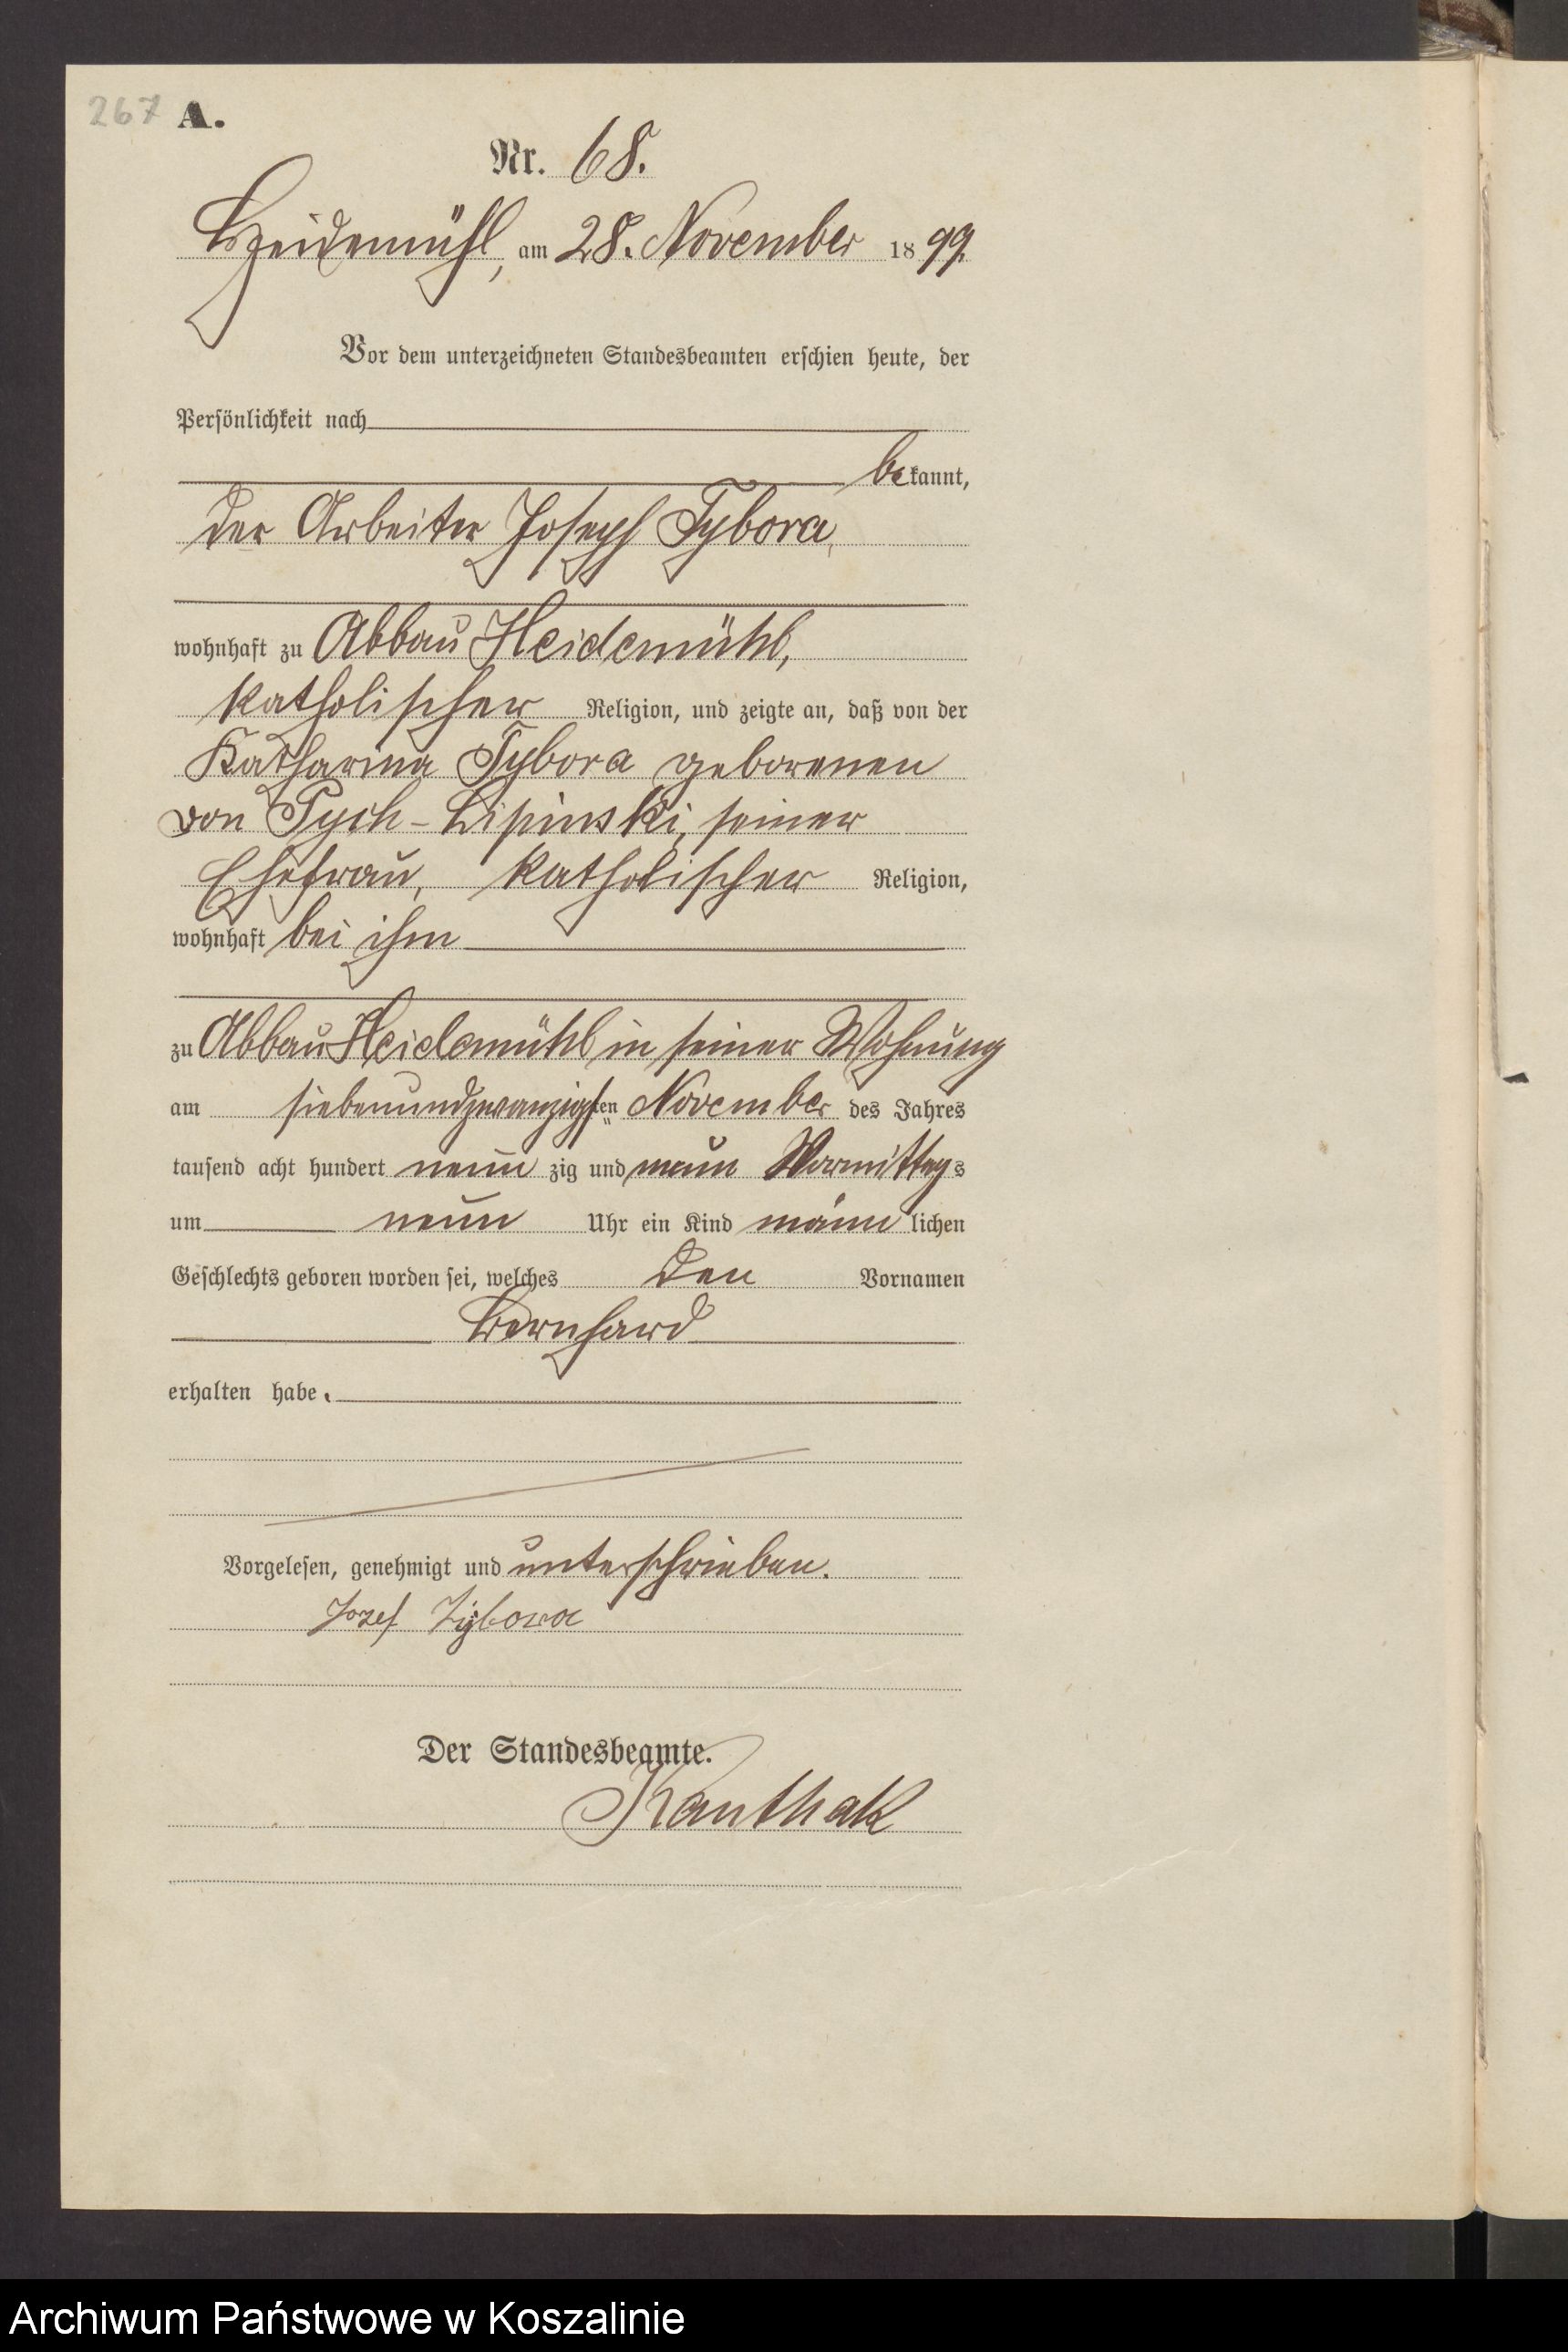 267 A.
Nr. 68.
Heidemühl, am 28. November 1899.
Vor dem unterzeichneten Standesbeamten erschien heute, der
Persönlichkeit nach
bekannt,
der Arbeiter Joseph Tybora,
wohnhaft zu Abbau Heidemühl,
katholischer Religion, und zeigte an, daß von der
Katharina Tybora geborenen
von Pych-Lipinski, seiner
Ehefrau, katholischer Religion,
wohnhaft bei ihm
zu Abbau Heidemühl in seiner Wohnung
am siebenundzwanzigsten November des Jahres
tausend acht hundert neunzig und neun Vormittags
um neun Uhr ein Kind männlichen
Geschlechts geboren worden sei, welches den Vornamen
Bernhard
erhalten habe.
Vorgelesen, genehmigt und unterschrieben.
Jozef Tybora
Der Standesbeamte.
Kanthak
Archiwum Państwowe w Koszalinie